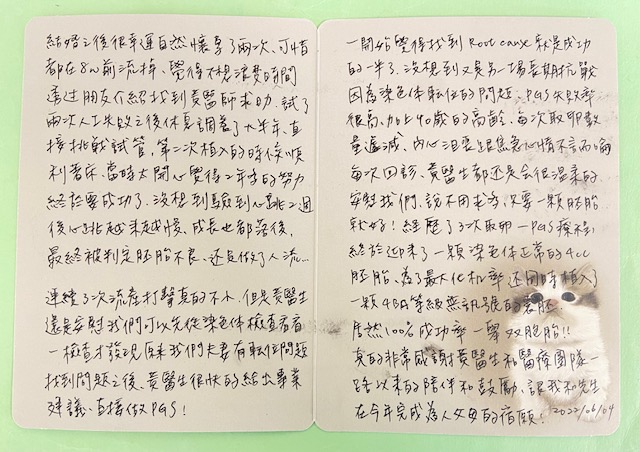 結婚之後很幸運自然懷孕了兩次、可惜
都在8w前流掉、覺得不想浪費時間
透過朋友介紹找到黃醫師求助、試了
兩次人工失敗之後休息調養了大半年、直
接挑戰試管、第二次植入的時候順
利著床、當時太開心覺得二年多的努力
終於要成功了、沒想到驗到心跳2週
後心跳越來越慢、成長也都落後、
最終被判定胚胎不良、還是做了人流...
連續了次流產打擊真的不小、但是黃醫生
還是安慰我們可以先從染色體檢查看看
一檢查才發現原來我們夫妻有転位問題
找到問題之後、黃醫生很快的給出專業
建議、直接做PGS!
一開始覺得找到Root cause就是成功
的一半了、沒想到又是另一場長期抗戰
因為染色體転位的問題、PGS失敗率
很高、加上40歲的高齡、每次取卵數
量遞減、內心沮喪跟焦急心情不言而喻
每次回診、黃醫生都還是會很溫柔的
安慰我們、說不用求多、只要一顆胚胎
就好! 經歷了3次取卵—PGS療程、
終於迎來了一顆染色體正常的4cc
胚胎、為了最大化機率、還同時植入了
一顆4BB等級無訊號的囊胚
居然100%成功率一舉双胞胎!!
真的非常感謝黃醫生和醫療團隊一
路以來的陪伴和鼓勵、讓我和先生
在今年完成為人父母的宿願!
2022/06/04